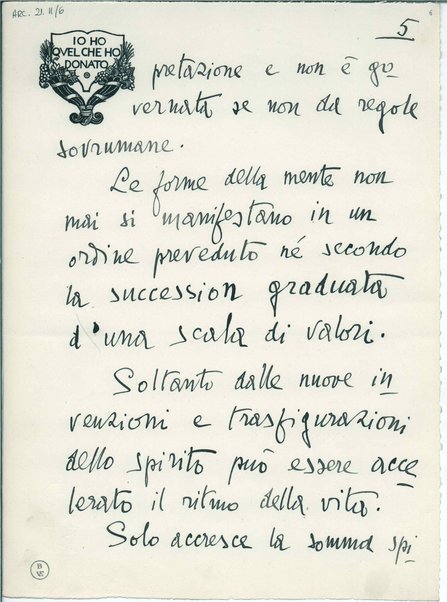 ARC. 21. II/6
5
IO HO
QVEL CHE HO
DONATO
pretazione e non è go
vernata se non da regole
sovrumane.
Le forme della mente non
mai si manifestano in un
ordine preveduto né secondo
la succession graduata
d'una scala di valori.
Soltanto dalle nuove in
venzioni e trasfigurazioni
dello spirito può essere acce
lerato il ritmo della vita.
Solo accresce la somma spi